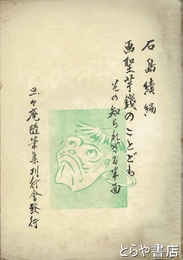 石島績編
画聖芋銭のことども
その知られざる半面
三々庵随筆集刊行會發行
とらや書店